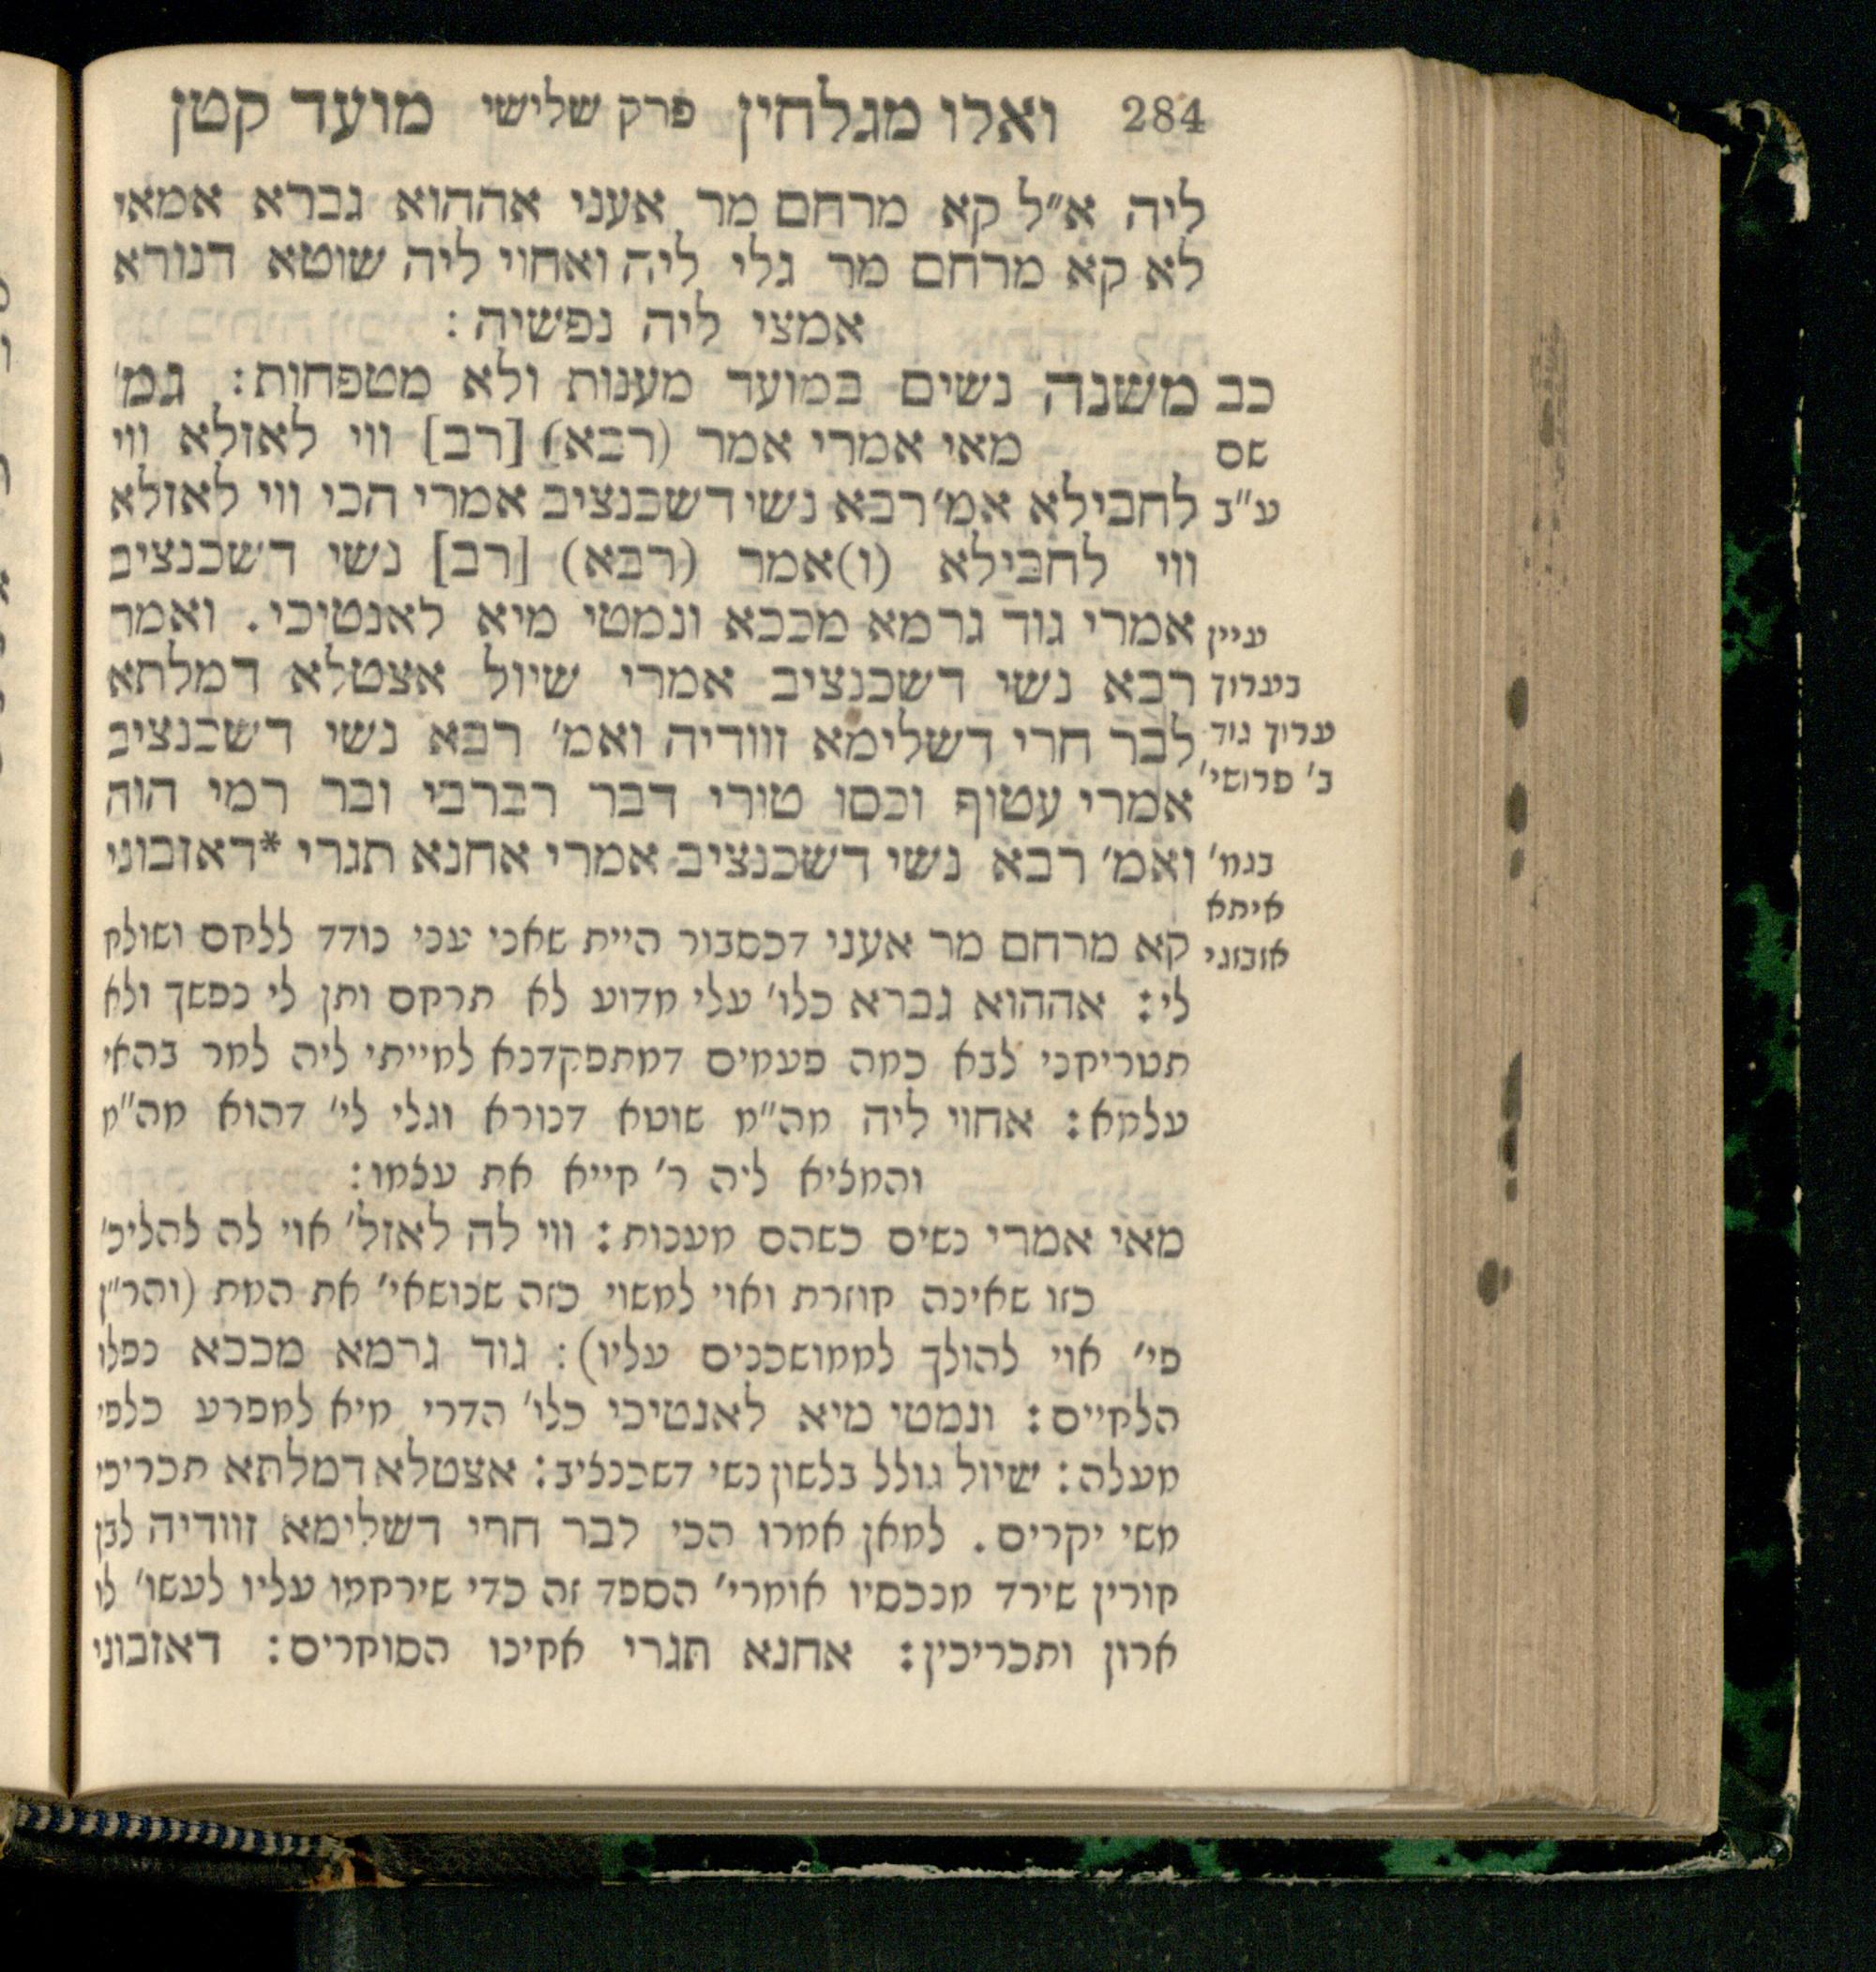 284 ואלו מגלחין פרק שלישי מועד קטן
ליה א"ל קא מרחם מר אעני אההוא גברא אמאי
לא קא מרחם מר גלי ליה ואחוי ליה שוטא דנורא
אמצי ליה נפשיה :
כב משנה נשים במועד מענות ולא מטפחות: גמ'
שם מאי אמרי אמר (רבא) [רב] ווי לאזלא ווי
ע"ב לחבילא אמ' רבא נשי דשכנציב אמרי הכי ווי לאזלא
ווי לחבילא (ו)אמר (רבא) [רב] נשי דשכנציב
עיין אמרי גוד גרמא מככא ונמטי מיא לאנטיכי. ואמר
בערוך רבא נשי דשכנציב אמרי שיול אצטלא דמלתא
ערוך גוד לבר חרי דשלימא זוודיה ואמ' רבא נשי דשכנציב
ב' פרושי' אמרי עטוף וכסו טורי דבר רברבי ובר רמי הוה
בגמ' ואמ' רבא נשי דשכנציב אמרי אחנא תגרי *דאזבוני
איתא
אזבוני קא מרחם מר אעני דכסבור היית שאני עני נודד ללחם ושולח
לי: אההוא גברא כלו' עלי מדוע לא תרחם ותן לי נפשך ולא
תטריחני לבא כמה פעמים דמתפקדנא למייתי ליה למר בהאי
עלמא: אחוי ליה מה"מ שוטא דנורא וגלי לי' דהוא מה"מ
והמציא ליה ר' חייא את עצמו:
מאי אמרי נשים כשהם מענות: ווי לה לאזל' אוי לה להליכ'
כזו שאינה חוזרת ואוי למשוי כזה שנושאי' את המת (והר"ן
פי' אוי להולך לממושכנים עליו): גוד גרמא מככא נפלו
הלחיים: ונמטי מיא לאנטיכי כלו' הדרי מיא למפרע כלפי
מעלה: שיול גולל בלשון נשי דשכנציב: אצטלא דמלתא תכריכי
משי יקרים. למאן אמרו הכי לבר חרי דשלימא זוודיה לבן
חורין שירד מנכסיו אומרי' הספד זה כדי שירחמו עליו לעשו' לו
ארון ותכריכין: אחנא תגרי אחינו הסוחרים: דאזבוני